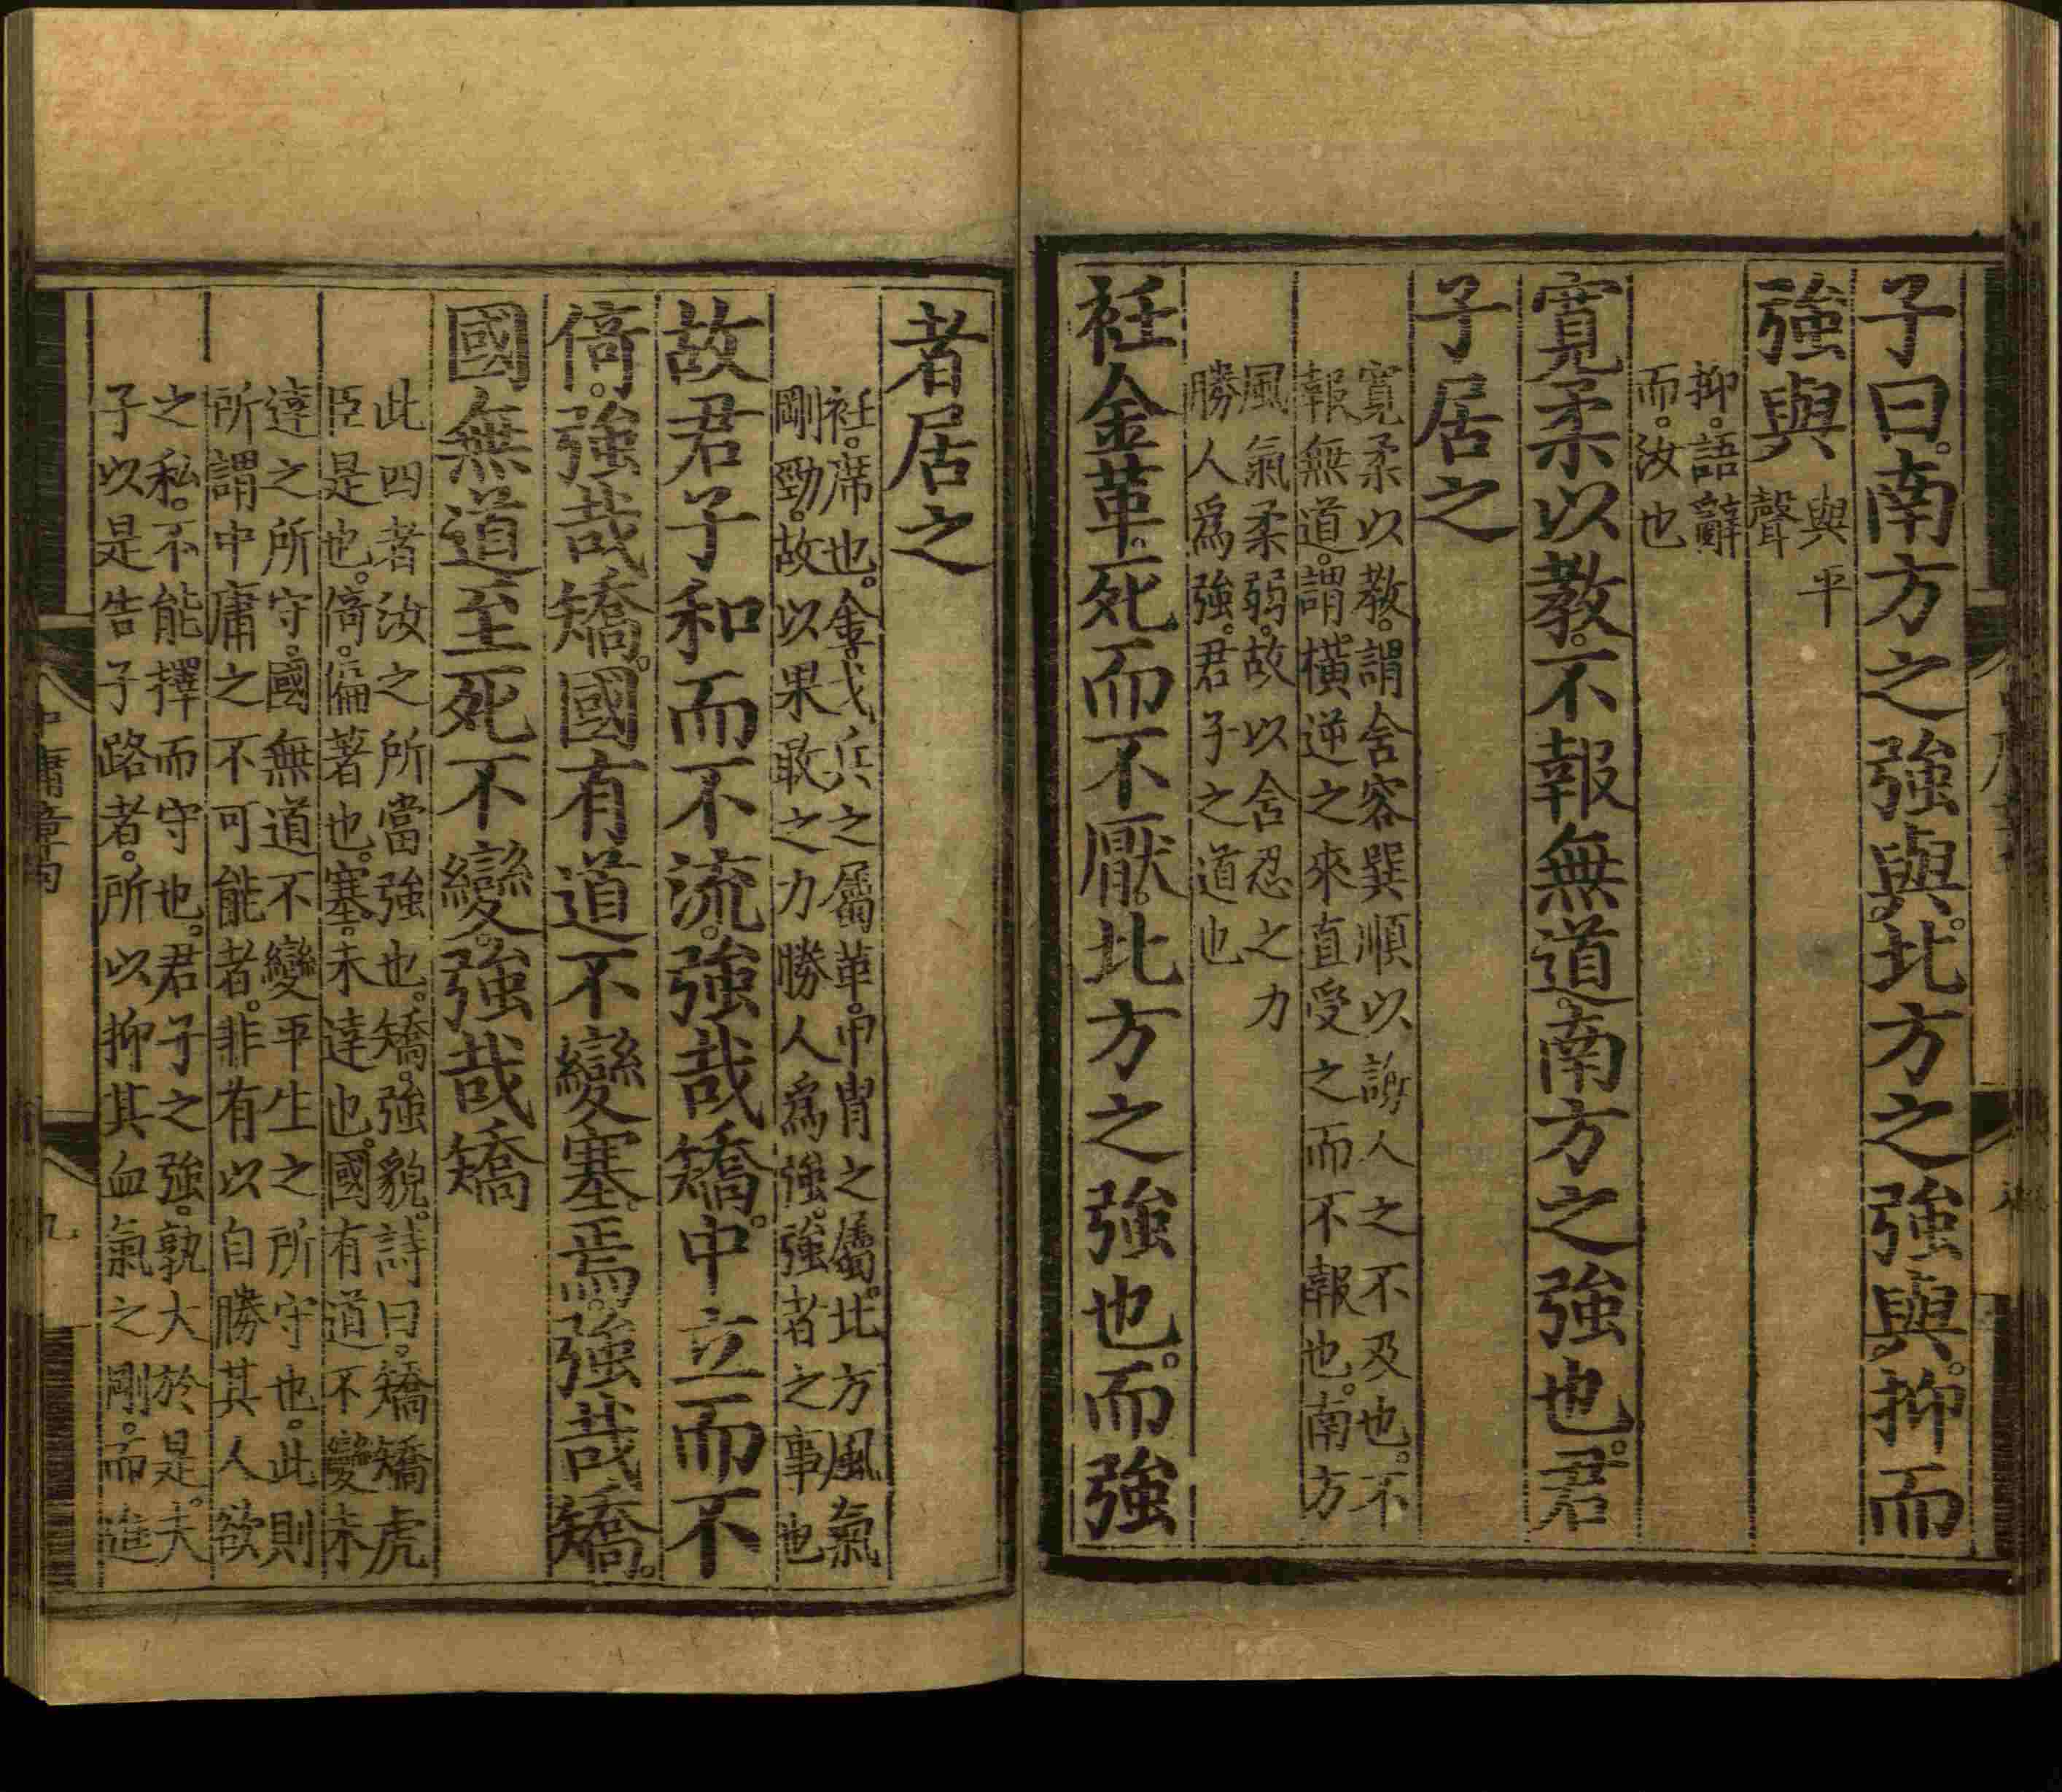 子曰。南方之強與。北方之強與。抑而
強與
與平
聲
抑。語辭
而。汝也
寬柔以教。不報無道。南方之強也。君
子居之
寬柔以教。謂含容巽順以誨人之不及也。不
報無道。謂橫逆之來直受之而不報也。南方
風氣柔弱。故以含忍之力
勝人爲強。君子之道也
衽金革。死而不厭。北方之強也。而強
者居之
衽。席也。金。戈兵之屬革。甲冑之屬。北方風氣
剛勁。故以果敢之力勝人爲強。強者之事也
故君子和而不流。強哉矯。中立而不
倚。強哉矯。國有道不變塞焉。強哉矯。
國無道至死不變。強哉矯
此四者汝之所當強也。矯。強貌。詩曰。矯矯虎
臣是也。倚。偏著也。塞。未達也。國有道不變未
達之所守。國無道不變平生之所守也。此則
所謂中庸之不可能者。非有以自勝其人欲
之私。不能擇而守也。君子之強。孰大於是。夫
子以是告子路者。所以抑其血氣之剛。而進
中庸章句
九